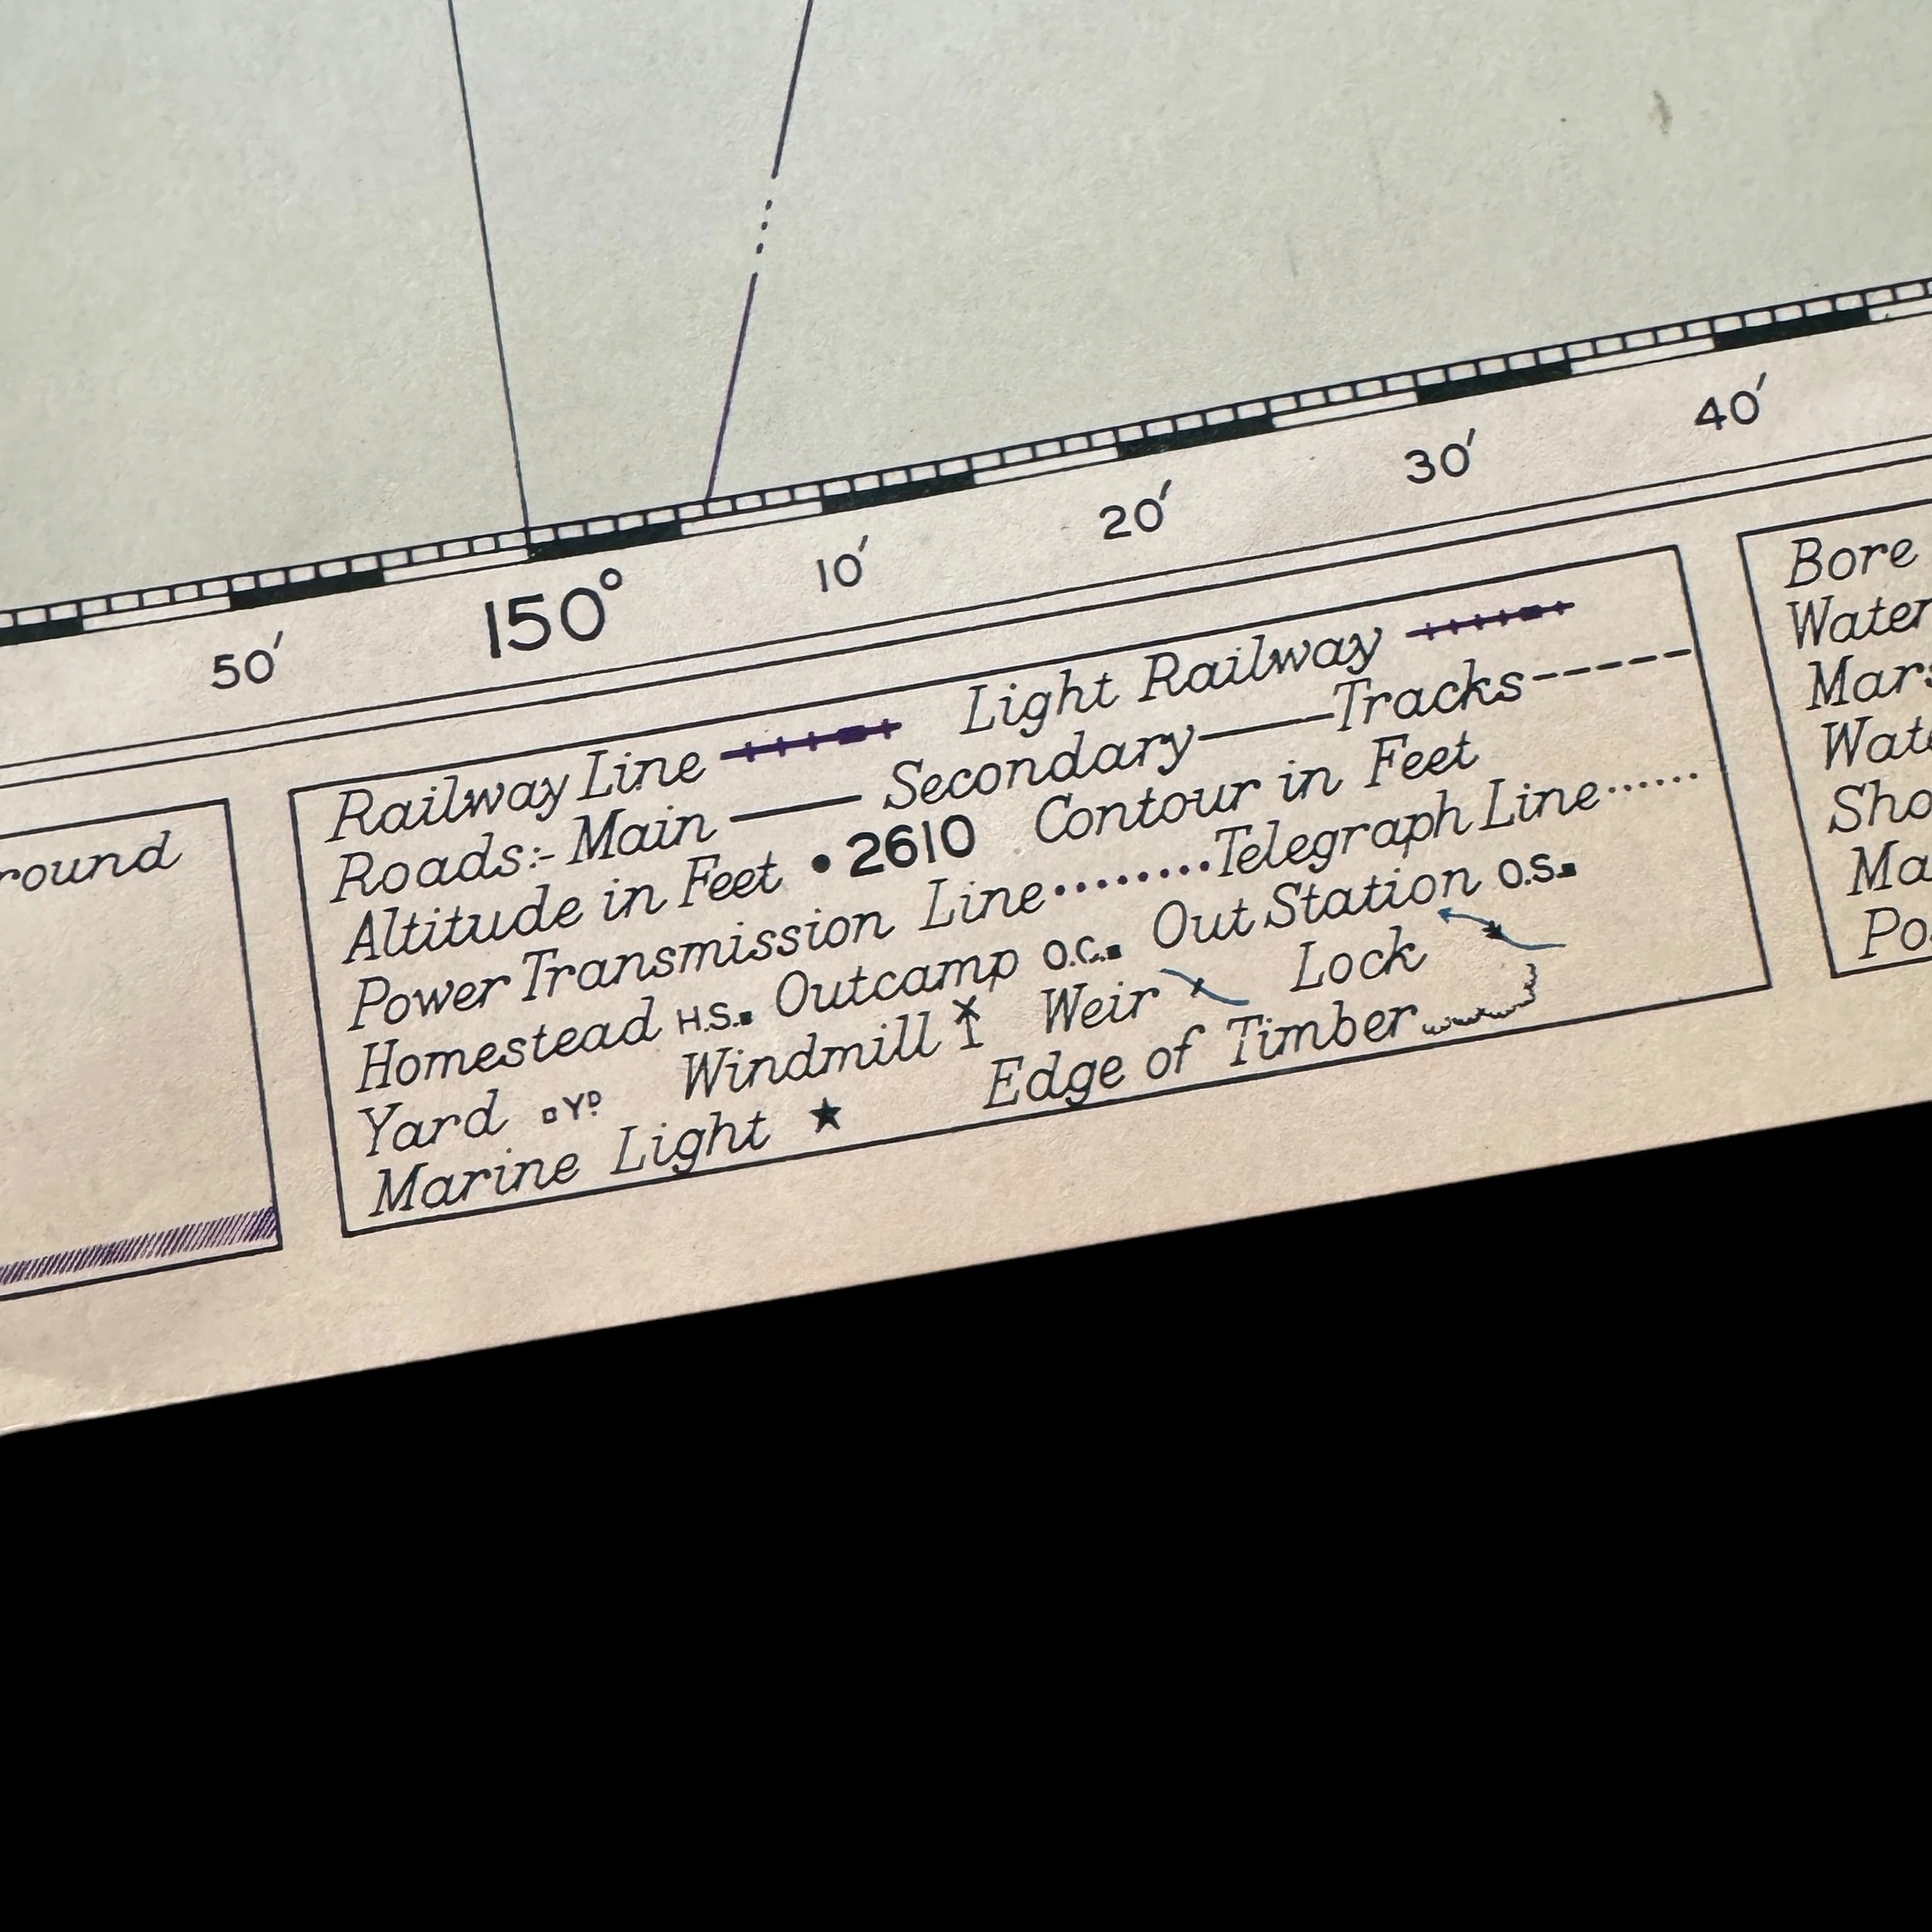 50′ 150° 10′ 20′ 30′ 40′
round
Railway Line Light Railway
Roads:- Main Secondary Tracks
Altitude in Feet •2610 Contour in Feet
Power Transmission Line ........ Telegraph Line ......
Homestead H.S. Outcamp O.C. Out Station O.S.
Yard Yᴰ Windmill Weir Lock
Marine Light ★ Edge of Timber
Bore
Water
Mars
Wat
Sho
Ma
Po